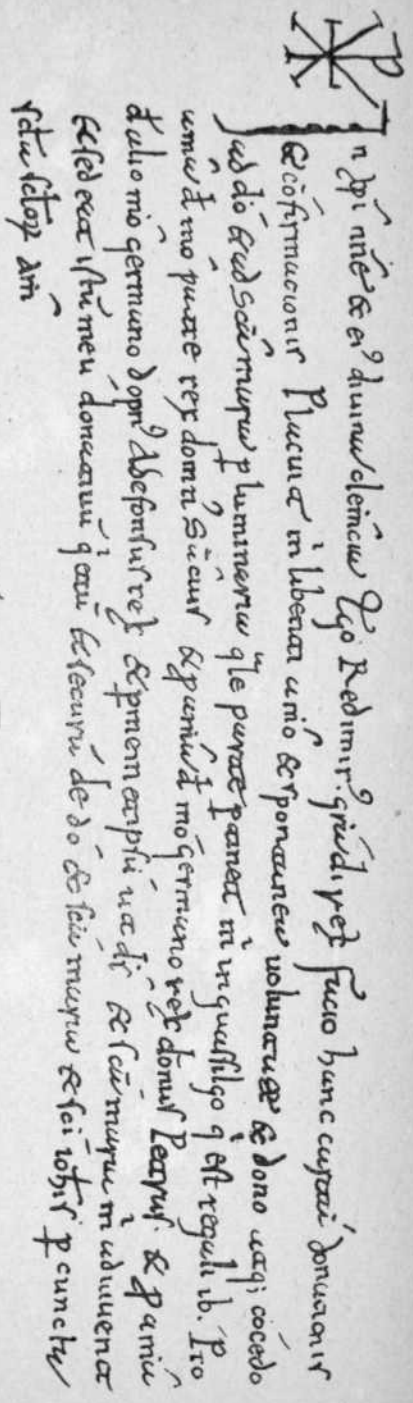 In xpi nne & ei⁹ diuina clemcia Ego Redimir⁹ gra di rex facio hanc cartā donacionis
& cōfirmacionis Placuit m̄ libenti animo & spontanea uoluntate & dono atqi cōcedo
ad dō & ad Scam maria p luminaria qle parte pertinet m̄ in q est regali ib. Pro
anima d mō patre rex domn⁹ Sanciu & p anima d mō germano rex donus Petrus & p anima
d alio mō germano dopn⁹ Adefonsus rex & p me ut di & scā maria m̄ adiuuent
& sedeat istū meū donatiuū qietū & securū de dō & scā maria & sci iohis p cuncta
scla sclor am